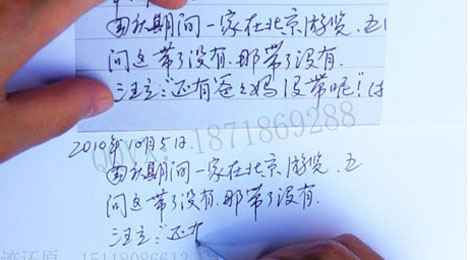 国庆期间一家在北京游览.五
问这带了没有.那带了没有.
汪立:"还有爸爸妈没带呢"
QQ/VX:1871869288
2010年10月5日.
国庆期间一家在北京游览.五
问这带了没有.那带了没有.
汪立:"还
迹还原 15118086613